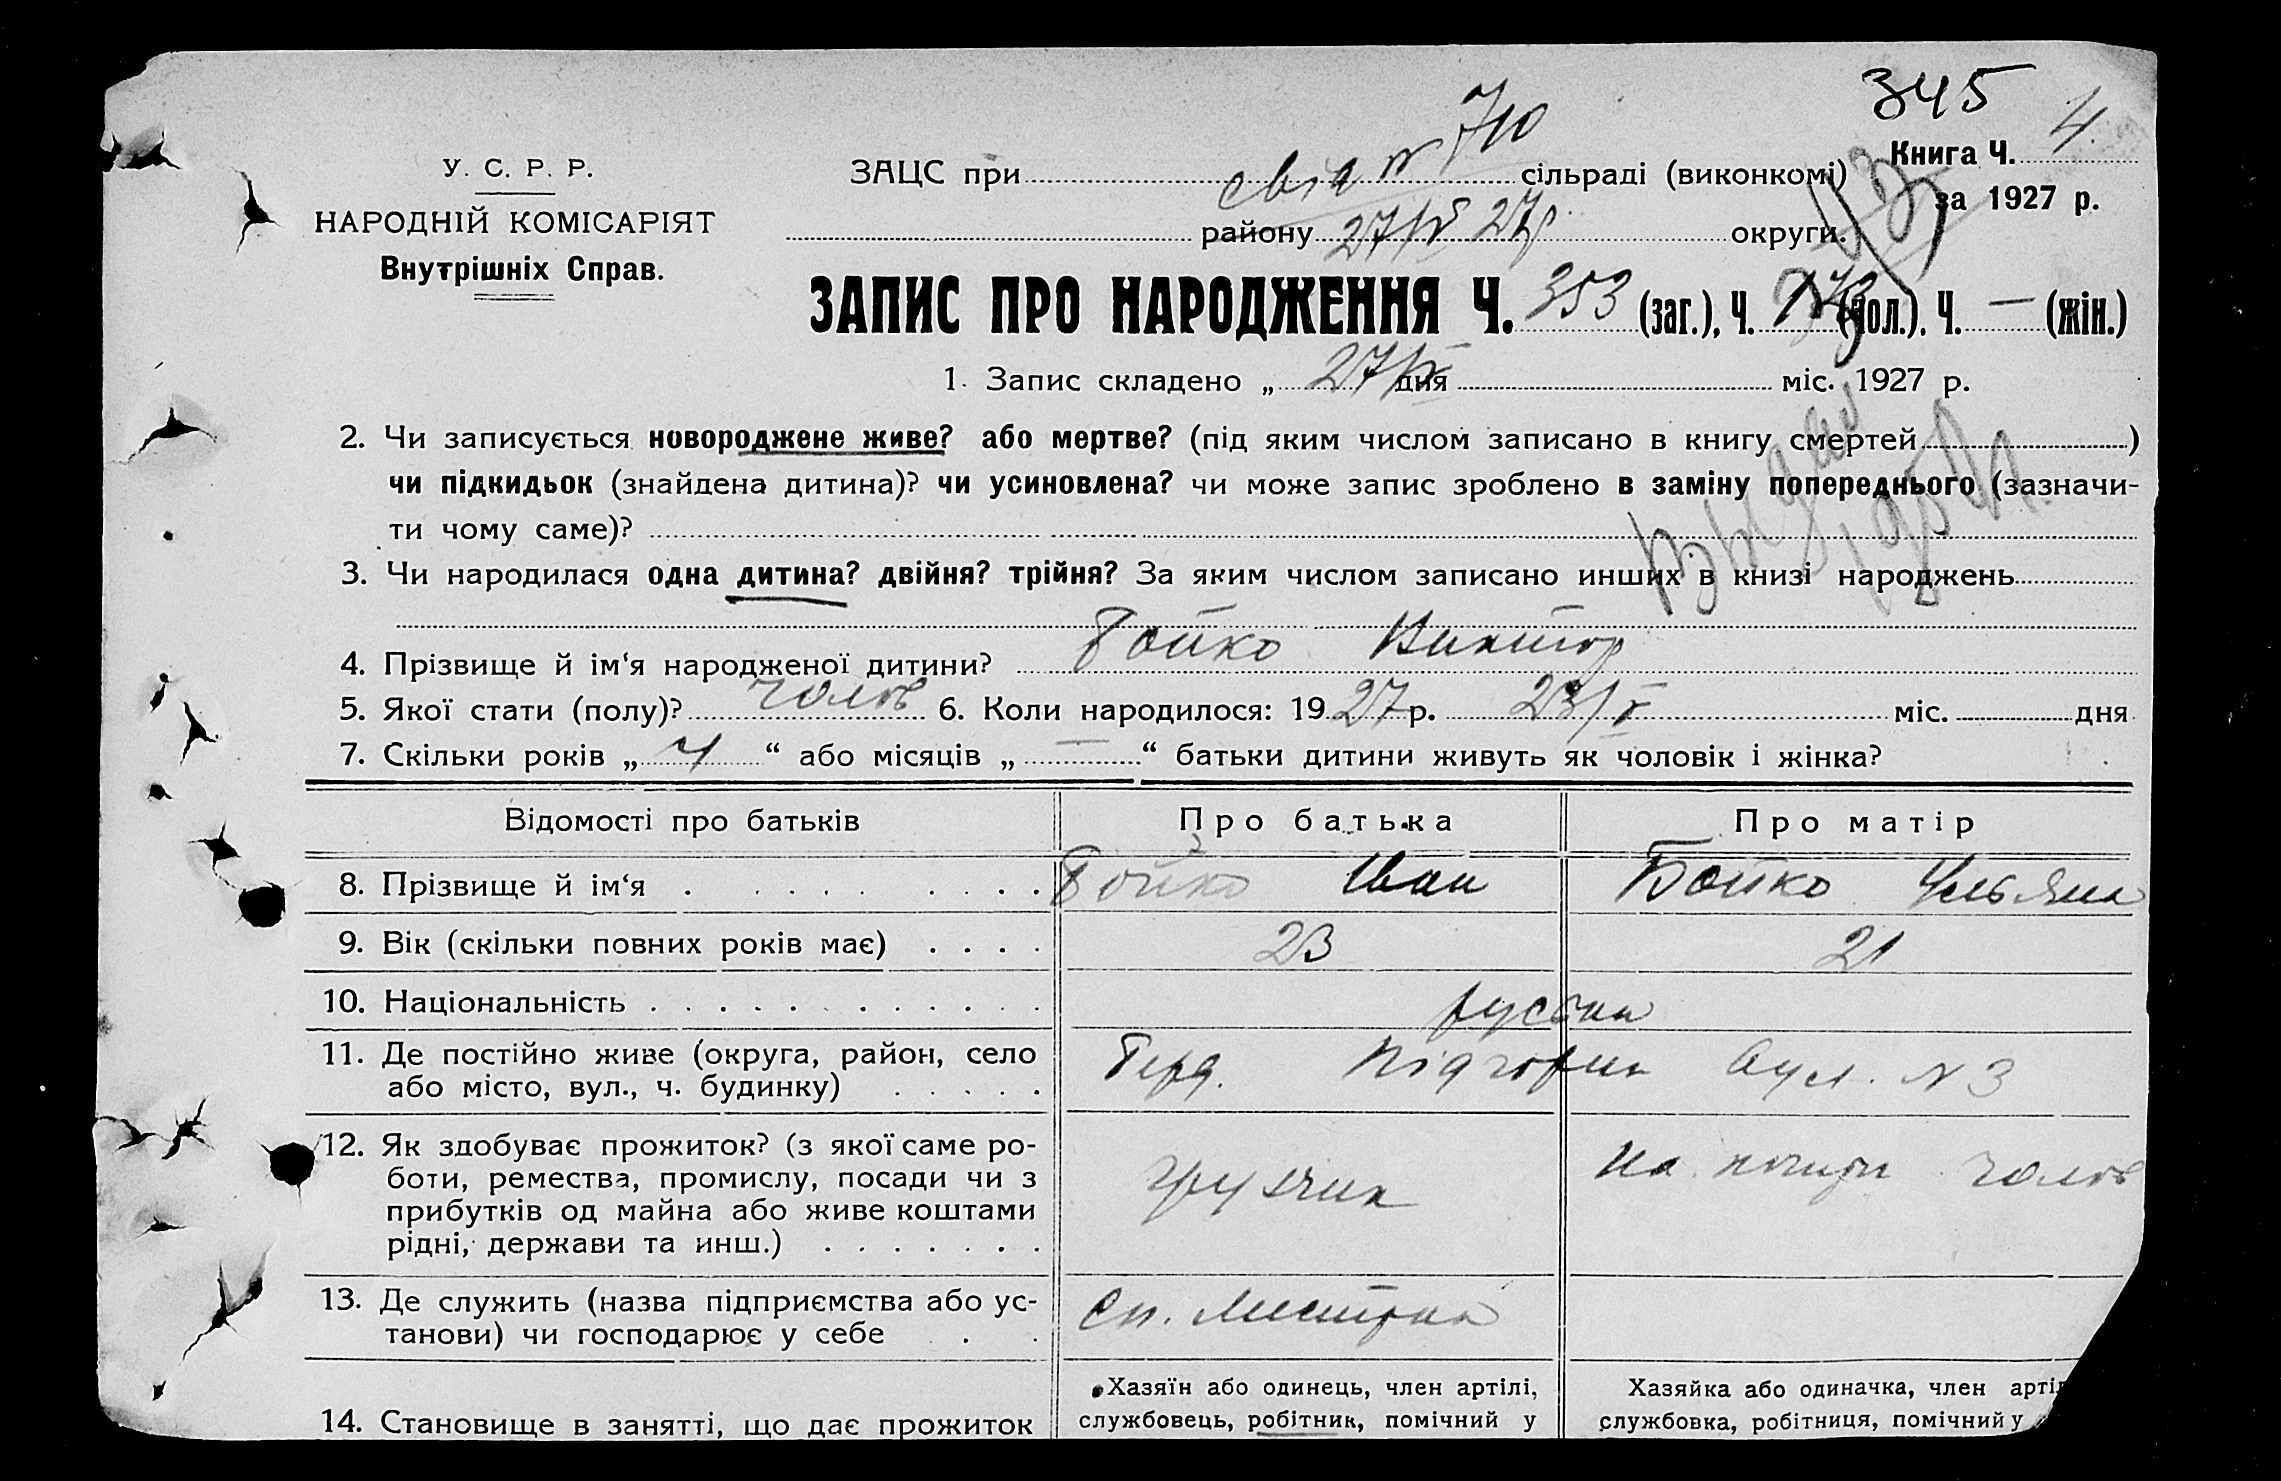 345
Книга Ч. 4.
за 1927 р.
У. С. Р. Р.
НАРОДНІЙ КОМІСАРІЯТ
Внутрішніх Справ.
ЗАЦС при сільраді (виконкомі)
району 27/V 27р. округи.
ЗАПИС ПРО НАРОДЖЕННЯ Ч. 353 (заг.), Ч. (чол.), Ч. — (жін.)
1. Запис складено „ 27/V дня міс. 1927 р.
2. Чи записується новороджене живе? або мертве? (під яким числом записано в книгу смертей )
чи підкидьок (знайдена дитина)? чи усиновлена? чи може запис зроблено в заміну попереднього (зазначи-
ти чому саме)?
3. Чи народилася одна дитина? двійня? трійня? За яким числом записано инших в книзі народжень
4. Прізвище й ім‘я народженої дитини? Бойко Виктор
5. Якої стати (полу)? чолов 6. Коли народилося: 19 27 р. 23/V міс. дня
7. Скільки років „ 4 “ або місяців „ — “ батьки дитини живуть як чоловік і жінка?
Відомості про батьків Про батька Про матір
8. Прізвище й ім‘я Бойко Іван Бойко Ульяна
9. Вік (скільки повних років має) 23 21
10. Національність
11. Де постійно живе (округа, район, село
або місто, вул., ч. будинку) Берд. Підгорна вул. N 3
12. Як здобуває прожиток? (з якої саме ро-
боти, ремества, промислу, посади чи з
прибутків од майна або живе коштами
рідні, держави та инш.) грузчик На чолов
13. Де служить (назва підприємства або ус-
танови) чи господарює у себе
14. Становище в занятті, що дає прожиток
Хазяїн або одинець, член артілі,
службовець, робітник, помічний у
Хазяйка або одиначка, член артіл
службовка, робітниця, помічний у